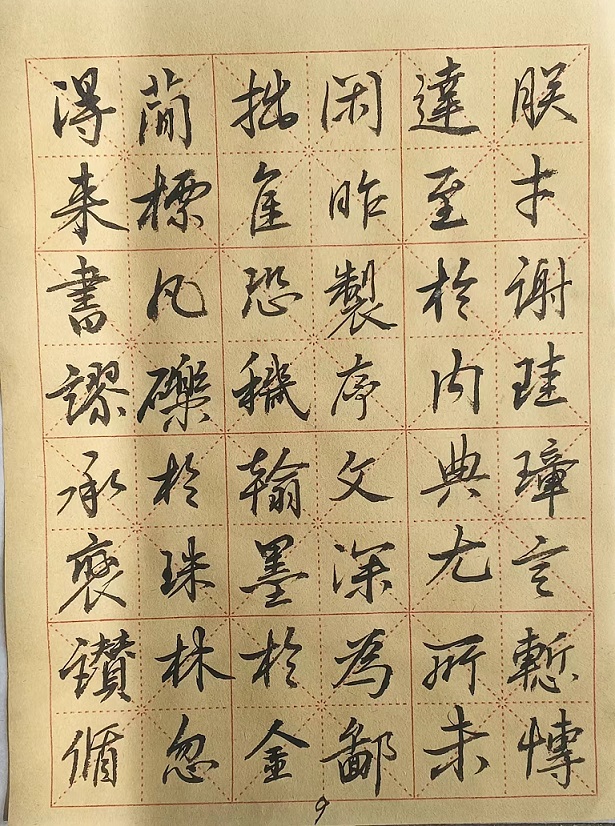 朕才謝珪璋言慙博
達至於内典尤所未
閑昨製序文深為鄙
拙唯恐穢翰墨於金
簡標凡礫於珠林忽
得来書謬承褒讃循
9